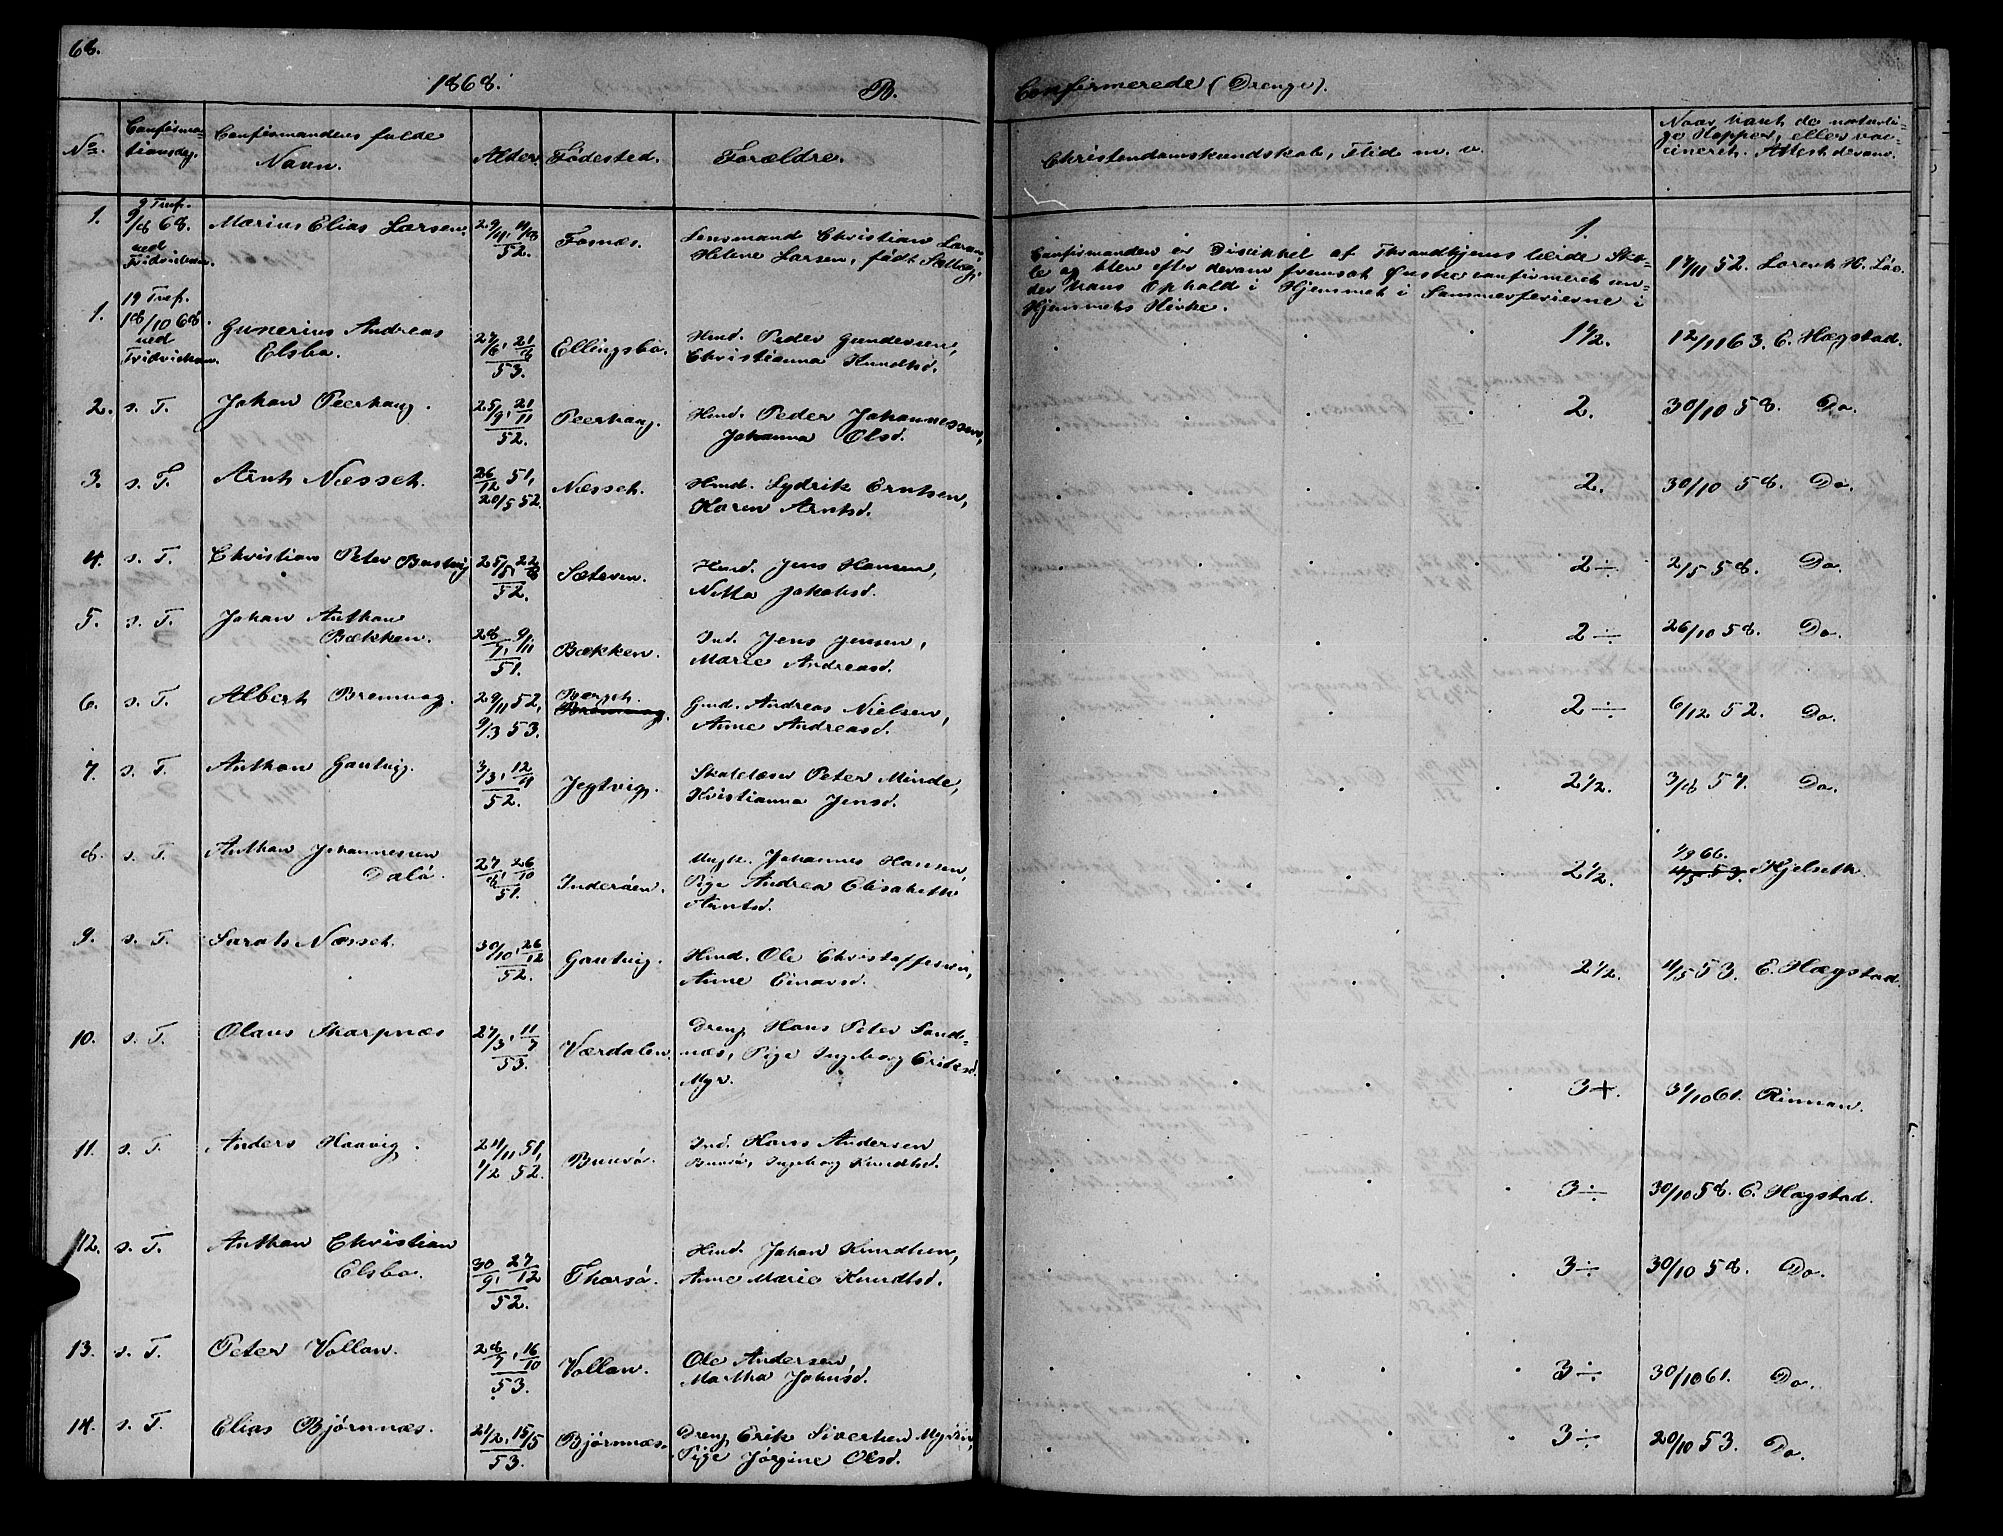 68.
1868. B. Confirmerede (Drenge).
No. Confirmationsdag. Confirmandens fulde Navn. Alder. Fødested. Forældre. Christendomskundskab, Flid m. v. Naar havt de naturlige Kopper, eller vaccineret. Attest derom.
1. 9 Tref. 9/8 68. ved Fridrichson. Marius Elias Larsen. 29/9, 11/ 52. Fosnæs. Lensmand Christian Larsen, Helene Larsen, født 1.
Confirmanden er Discippel af Throndhjems lærde Sko-
le og blev efter derom fremsat Ønske confirmeret un-
der hans Ophold i Hjemmet i Sommerferierne i
Hjemmets Kirke. 17/11 52. Lorents H. Lie.
1. 19 Tref. 18/10 68. ved Fridrichson. Gunerius Andreas Elsbo. 27/6, 21/8 53. Ellingsbo. Hmd. Peder Gundersen, Christianna Knudtsd. 1 1/2. 12/11 63. E. Hægstad.
2. s. T. Johan Peerhaug. 25/9, 21/11 52. Peerhaug. Hmd. Peder Johannessen, Johanna Olsd. 2. 30/10 58. Do.
3. s. T. Arnt Næsset. 26/12 51, 20/5 52. Næsset. Hmd. Lydrik Erntsen, Karen Arntsd. 2. 30/10 58. Do.
4. s. T. Christian Peter Bustvig 25/5, 22/8 52. Sæteren. Hmd. Jens Hansen, Nilla Jakobsd. 2 ÷ 2/5 58. Do.
5. s. T. Johan Anthon Bækken. 28/7, 9/11 51. Bækken. Ind. Jens Jensen, Marie Andreasd. 2 ÷ 26/10 58. Do.
6. s. T. Albert Bremvag. 29/11 52, 9/3 53. Berget. Bremvag. Gmd. Andreas Nielsen, Anne Andreasd. 2 ÷ 6/12 52. Do.
7. s. T. Anthon Gautvig. 3/3, 12/11 52. Jegtvig. Skolelærer Peter Minde, Kristianna Jensd. 2 1/2. 3/8 57. Do.
8. s. T. Anthon Johannessen Dalø. 27/8, 26/10 51. Inderøen. Ungk. Johannes Hansen, Pige Andrea Elisabeth Arntsd. 2 1/2. 1/9 66. 11/5 53. Kjelseth.
9. s. T. Sarak Næsset. 30/10, 26/12 52. Gautvig. Hmd. Ole Christoffersen, Anne Einarsd. 2 1/2. 11/5 53. E. Hægstad.
10. s. T. Olaus Skarpnæs 27/3, 11/7 53. Værdalen. Dreng Hans Peter Sand-
næs, Pige Ingeborg Eriksd.
Myr. 3 + 31/10 61. Rinnan.
11. s. T. Anders Haavig. 24/11 51, 1/2 52. Buusø. Ind. Hans Andersen Buusø, Ingeborg Knudtsd. 3 ÷ 30/10 58. E. Hægstad.
12. s. T. Anthon Christian Elsbo. 30/9, 27/12 52. Thorsø. Hmd. Johan Knudtsen, Anne Marie Knudtsd. 3 ÷ 30/10 58. Do.
13. s. T. Peter Vollan. 28/7, 16/10 53. Vollan. Ole Andersen, Martha Johnsd. 3 ÷ 30/10 61. Do.
14. s. T. Elias Bjørnnæs. 21/2, 15/5 53. Bjørnnæs. Dreng Erik Sivertsen, Pige Jørgine Olsd. 3 ÷ 20/10 53. Do.